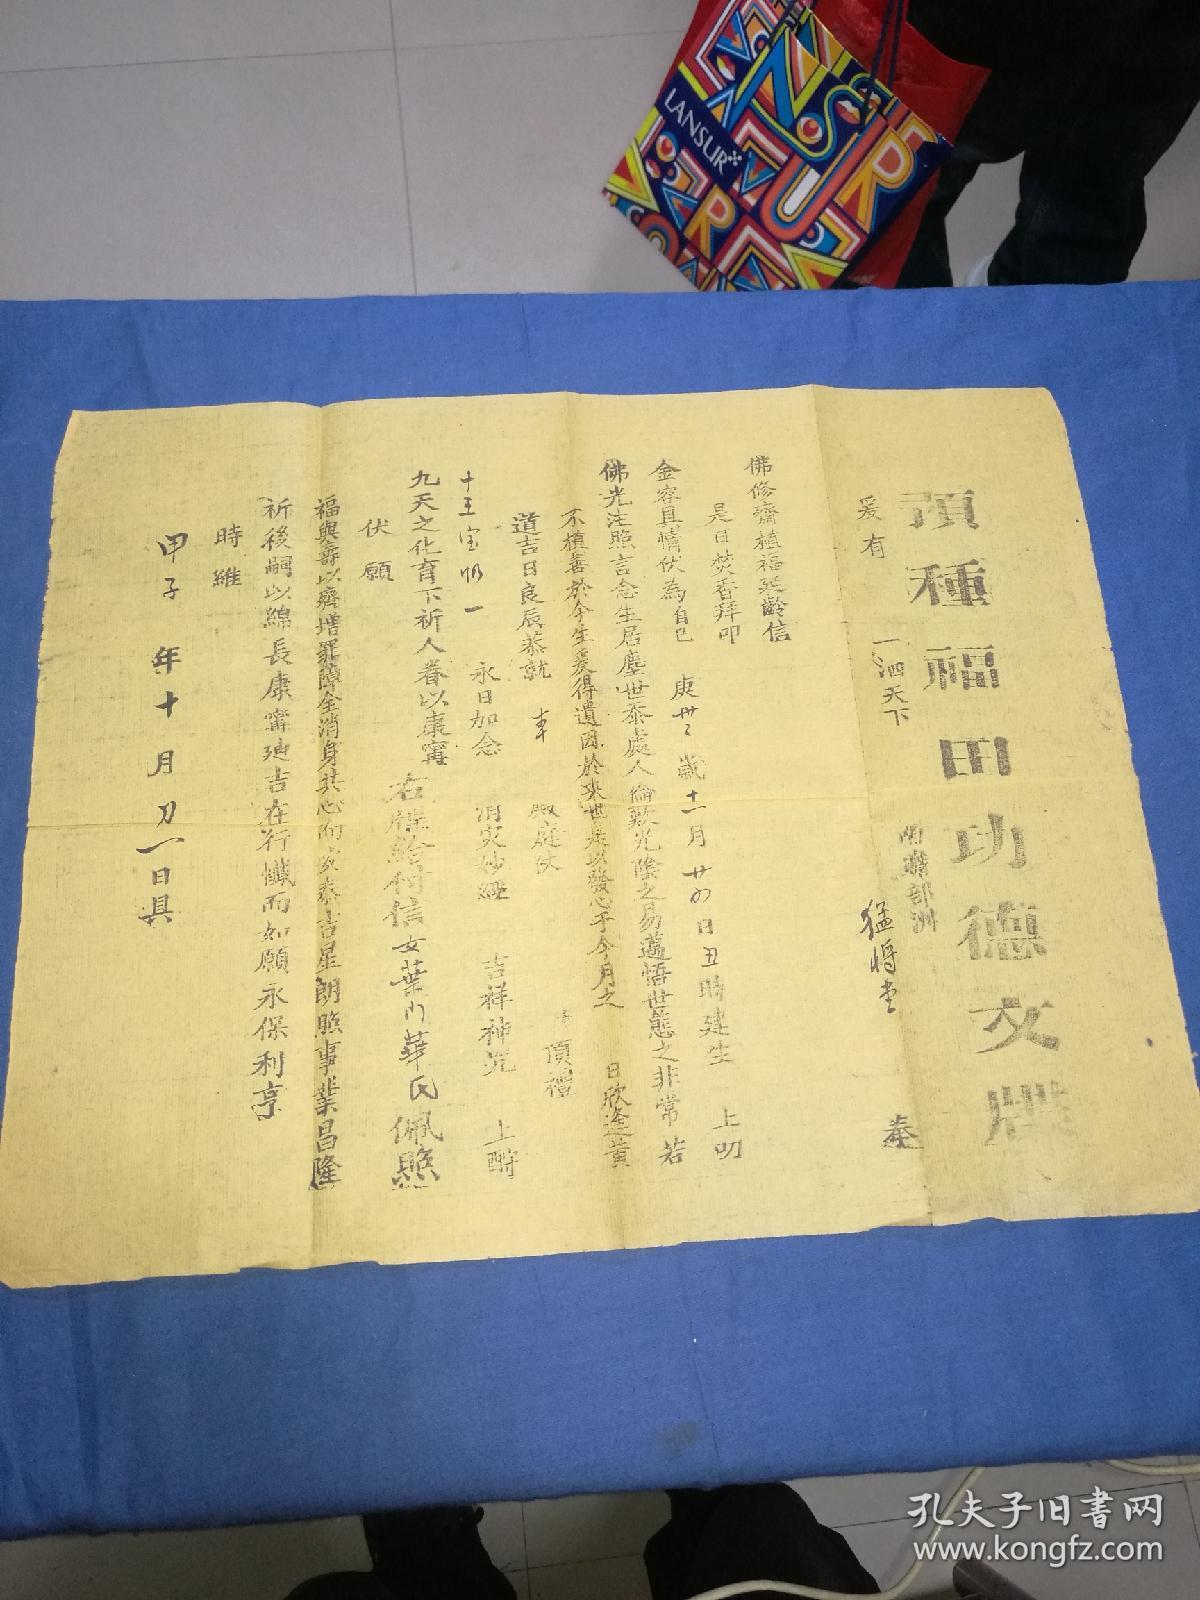 預種福田功德文牒
一泗天下 南贍部洲
爰有 猛將堂 奉
佛修齋植福延齡信
是日焚香拜叩
金容具情伏為自己 庚 歲十一月廿四日丑時建生 上叨
佛光注照言念生居塵世忝處人倫歎光陰之易邁悟世態之非常若
不植善於今生爰得遺因於來世是以發心于今月之 日欣逢黃
道吉日良辰恭就 庭伏 頂禮
十王寶 一 永日加念 消灾妙經 吉祥神咒 上酧
九天之化育下祈人眷以康寧
右牒給付信女葉門華氏佩照
伏願
福與壽以齊增罪障全消身共心而 泰吉星朗照事業昌隆
祈後嗣以綿長康甯廸吉在行懺而如願永保利亨
時維
甲子年十月 一日具
LANSUR
孔夫子旧书网
www.kongfz.com